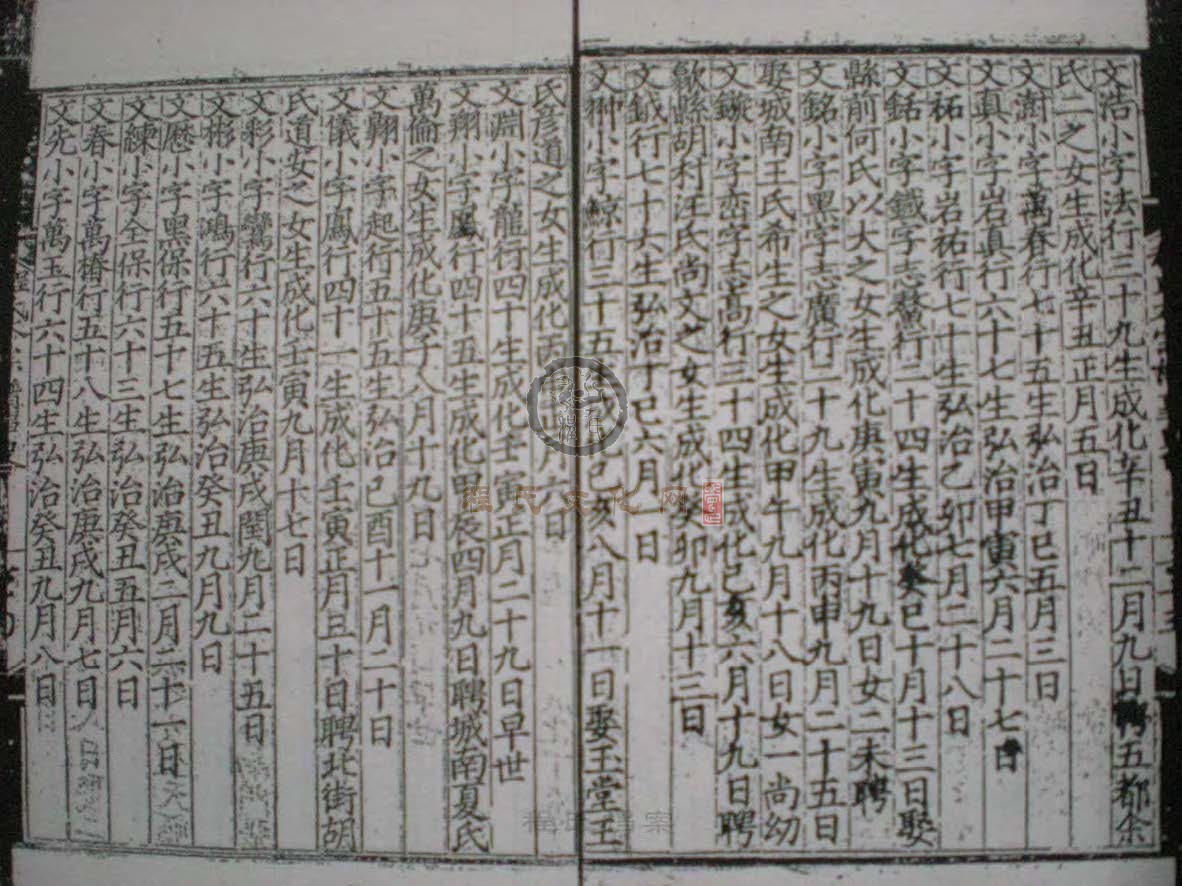 文浩小字法行三十九生成化辛丑十二月九日聘五都余
氏二之女生成化辛丑正月五日
文澍小字萬春行七十五生弘治丁巳五月三日
文真小字岩真行六十七生弘治甲寅六月二十七日
文祐小字岩祐行七十生弘治乙卯七月二十八日
文銛小字鐵字志鰲行二十四生成化癸巳十月十三日娶
縣前何氏以大之女生成化庚寅九月十九日女二未聘
文銘小字黑字志廣行二十九生成化丙申九月二十五日
娶城南王氏希生之女生成化甲午九月十八日女一尚幼
文鏾小字巒字志高行三十四生成化己亥六月十九日聘
歙縣胡村汪氏尚文之女生成化癸卯九月十三日
文鉞行七十六生弘治丁巳六月一日
文柳小字鯨行三十五生成化己亥八月十一日娶玉堂王
氏彦道之女生成化丙 月六日
文淵小字龍行四十生成化壬寅正月二十九日早世
文翔小字鳳行四十五生成化甲辰四月九日聘城南夏氏
萬倫之女生成化庚子八月十九日
文翱小字起行五十五生弘治己酉十一月二十日
文儀小字鳳行四十一生成化壬寅正月三十日聘北街胡
氏道安之女生成化壬寅九月十七日
文彩小字鸞行六十生弘治庚戌閏九月二十五日
文彬小字鴻行六十五生弘治癸丑九月九日
文懕小字黑保行五十七生弘治庚戌二月二十六日
文練小字全保行六十三生弘治癸丑五月六日
文春小字萬椿行五十八生弘治庚戌九月七日
文先小字萬玉行六十四生弘治癸丑九月八日
程氏文化网
程氏档案